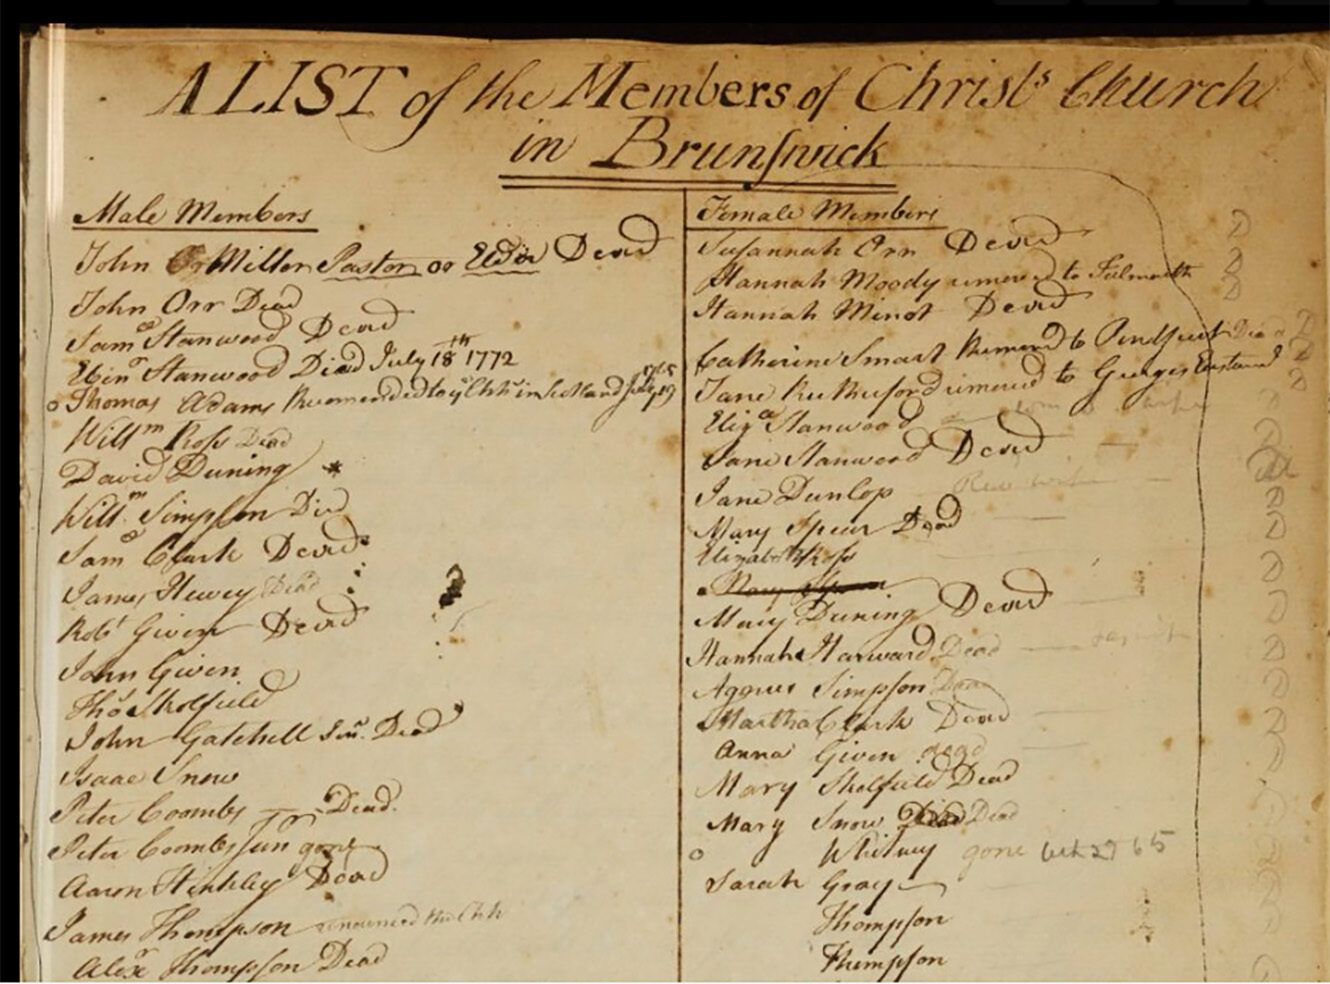 A LIST of the Members of Christs Church
in Brunſwick
Male Members
John Miller Pastor or Elder Dead
John Orr Dead
Sam Stanwood Dead
Eben Stanwood Died July 18th 1772
Thomas Adams Recomended to ye Chh in Scotland
Willm Roſs Dead
David Duning *
Willm Simpſon Died
Sam Clark Dead
James Hewey Dead
Robt Given Dead
John Given
Tho Skolfield
John Gatchell Sen. Dead
Isaac Snow
Peter Coombs Dead.
Peter Coombs Jun gone
Aaron Hinkley Dead
James Thompson renounced the Chh
Alexr Thompſon Dead
Female Members
Susannah Orr Dead
Hannah Moody removed to Falmouth
Hannah Minot Dead
Catherine Smart Removed to Dead
Jane Rutherford removed to Georges Eastward
Eliza Stanwood
Jane Stanwood Dead
Jane Dunlop
Mary Spear Dead
Elizabeth Roſs
Mary Duning Dead
Hannah Harward Dead
Agnes Simpſon Dead
Martha Clark Dead
Anna Given dead
Mary Skolfield Dead
Mary Snow Dead Dead
Whitney gone 65
Sarah Gray
Thompſon
Thompſon